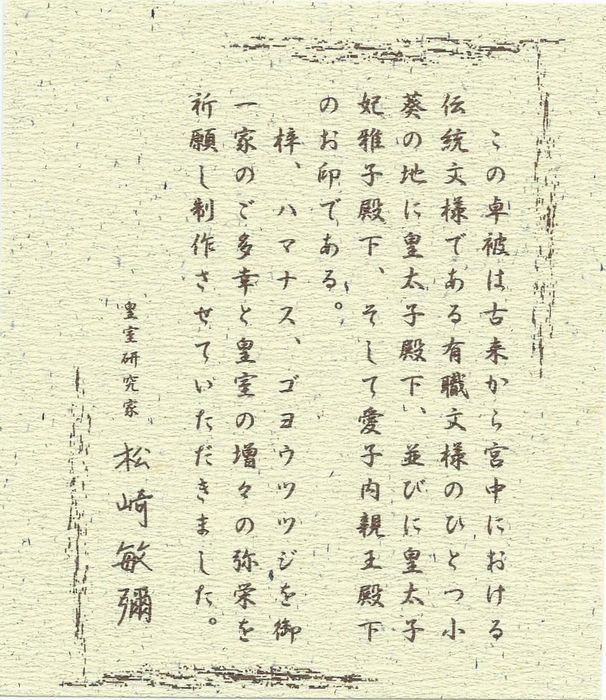 この卓被は古来から宮中における
伝統文様である有職文様のひとつ小
葵の地に皇太子殿下、並びに皇太子
妃雅子殿下、そして愛子内親王殿下
のお印である。
梓、ハマナス、ゴヨウツツジを御
一家のご多幸と皇室の増々の弥栄を
祈願し制作させていただきました。
皇室研究家 松崎敏彌